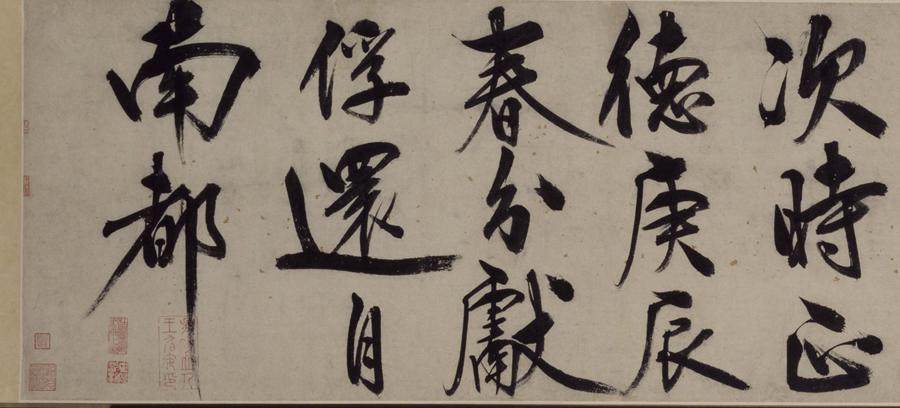 次時正
德庚辰
春分獻
俘還自
南都